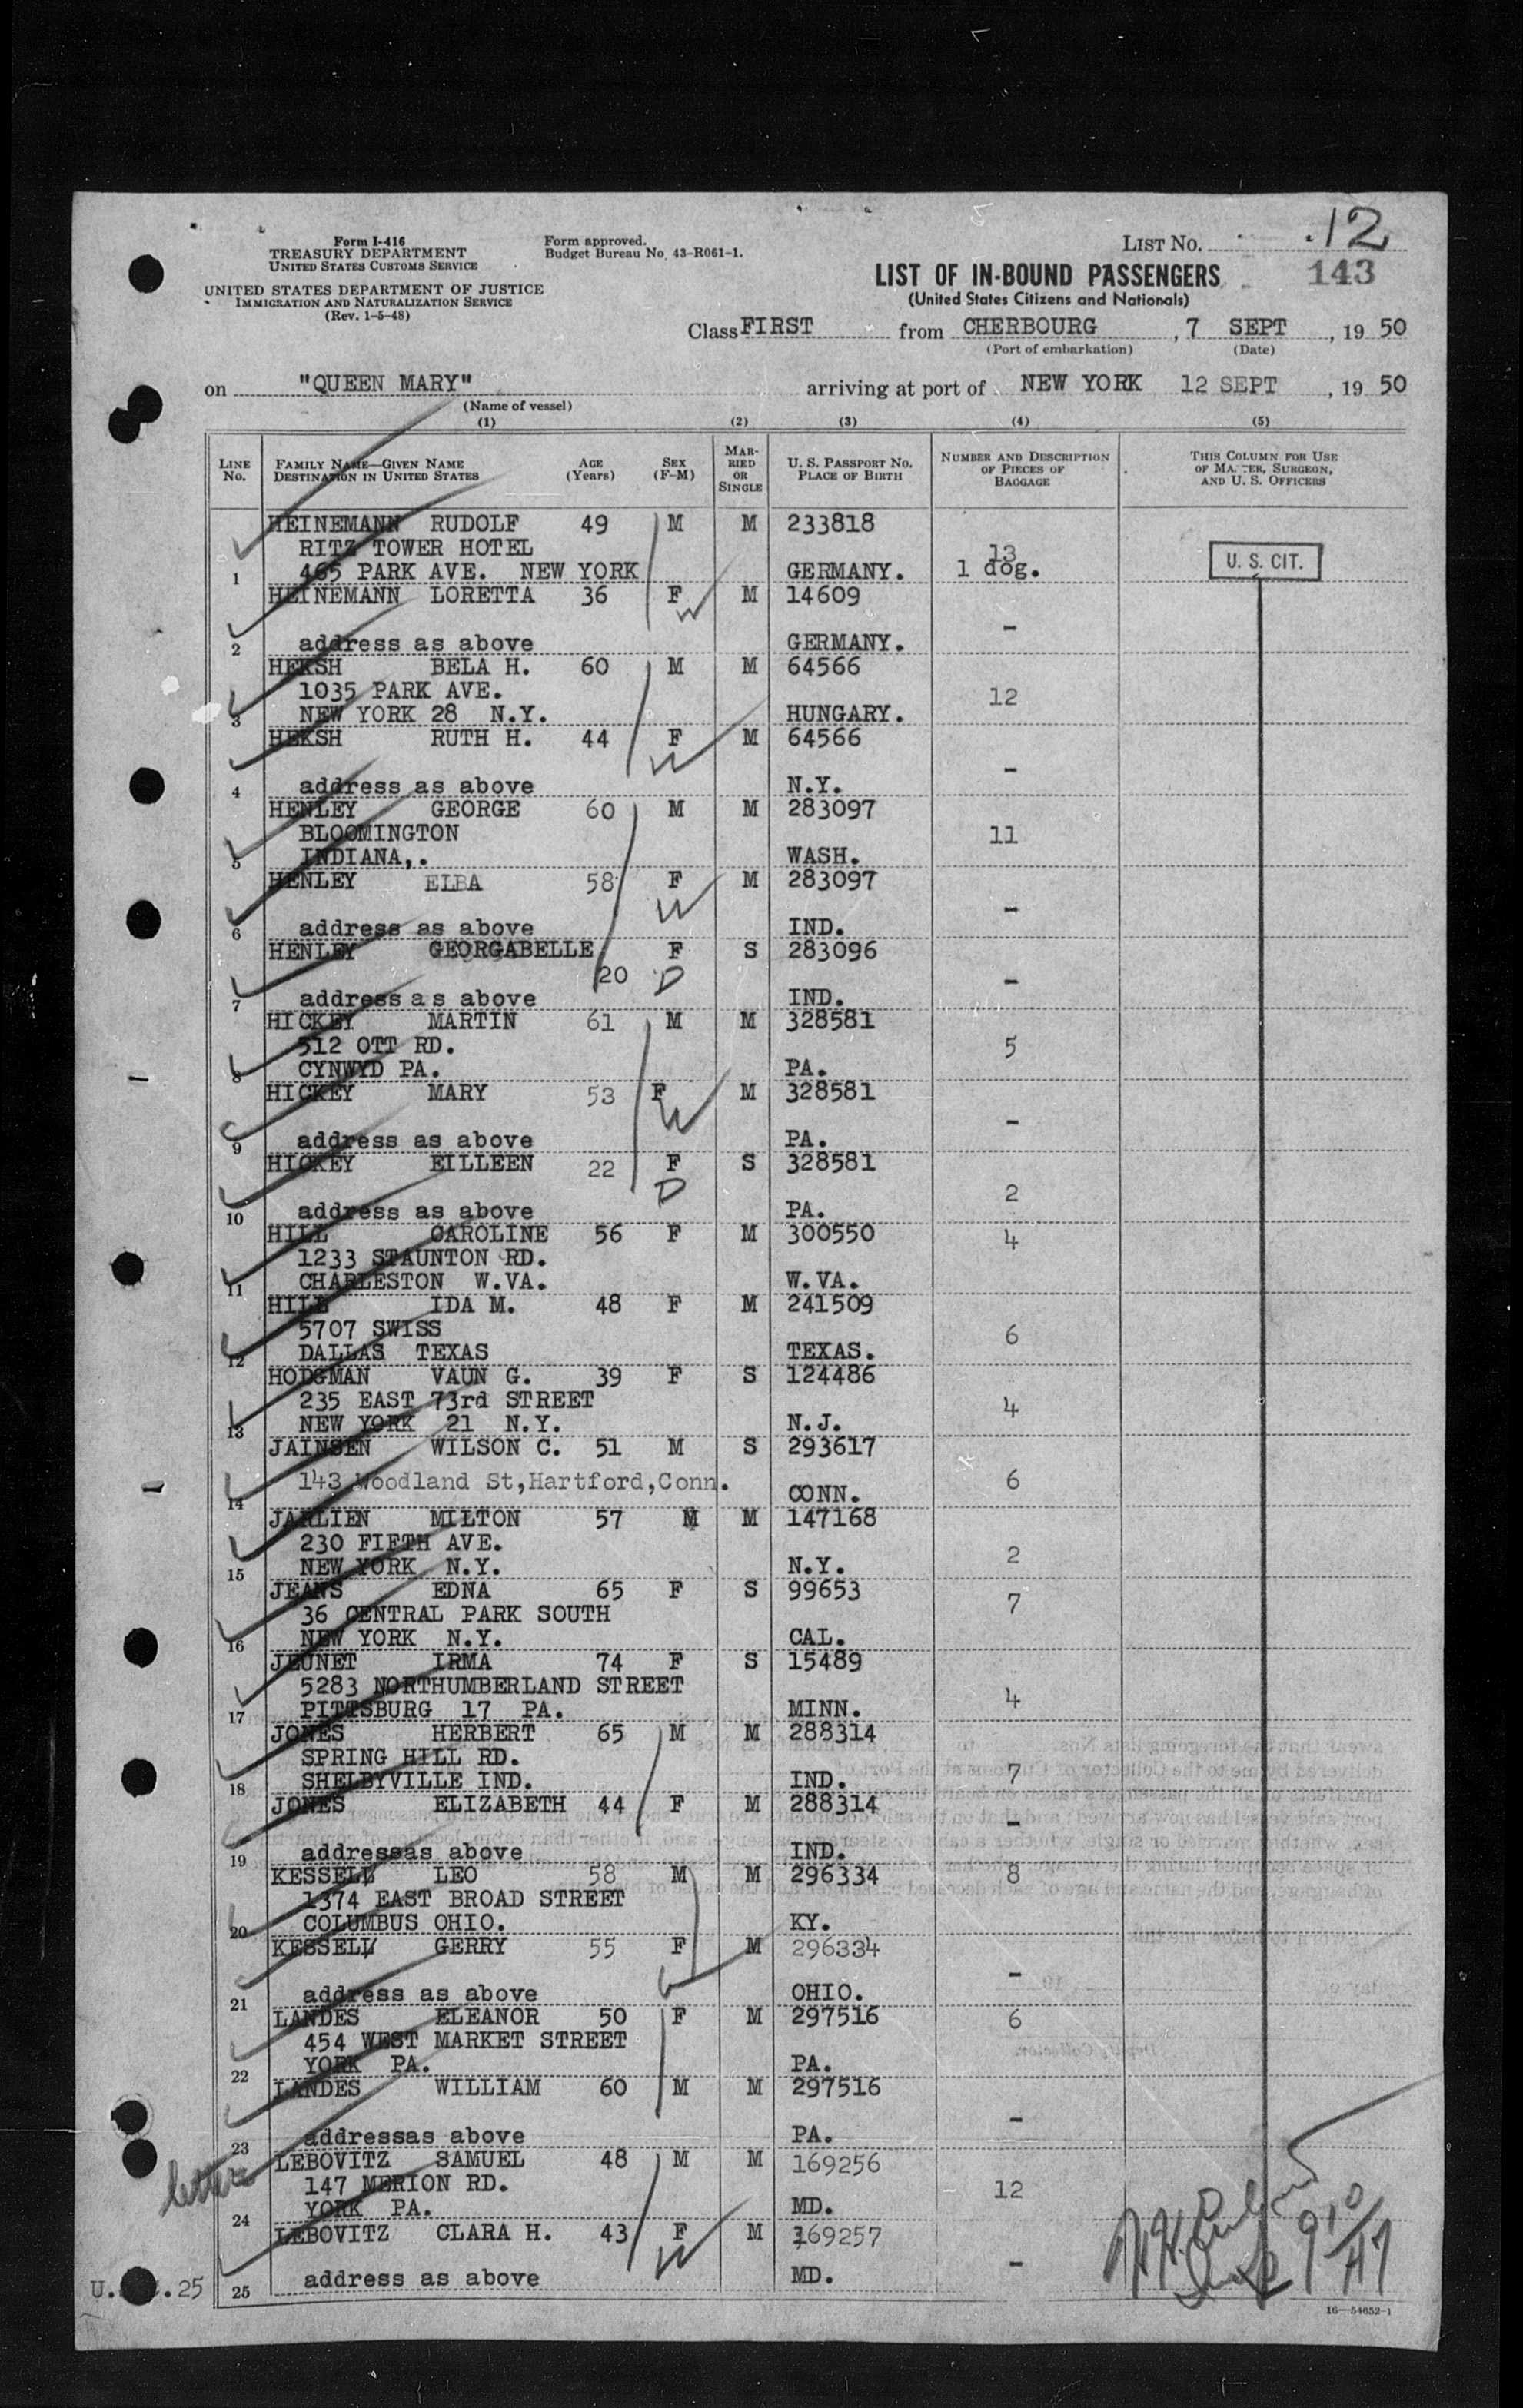 12
Form I-416
TREASURY DEPARTMENT
UNITED STATES CUSTOMS SERVICE
UNITED STATES DEPARTMENT OF JUSTICE
IMMIGRATION AND NATURALIZATION SERVICE
(Rev. 1-5-48)
Form approved.
Budget Bureau No. 43-R061-1.
LIST No.
LIST OF IN-BOUND PASSENGERS 143
(United States Citizens and Nationals)
Class FIRST from CHERBOURG , 7 SEPT , 19 50
(Port of embarkation) (Date)
on "QUEEN MARY" arriving at port of NEW YORK 12 SEPT , 19 50
(Name of vessel)
(1) (2) (3) (4) (5)
LINE No. FAMILY NAME—GIVEN NAME DESTINATION IN UNITED STATES AGE (Years) SEX (F-M) MARRIED OR SINGLE U. S. PASSPORT No. PLACE OF BIRTH NUMBER AND DESCRIPTION OF PIECES OF BAGGAGE THIS COLUMN FOR USE OF MASTER, SURGEON, AND U. S. OFFICERS
HEINEMANN RUDOLF 49 M M 233818
RITZ TOWER HOTEL 13 U. S. CIT.
1 465 PARK AVE. NEW YORK GERMANY. 1 dog.
HEINEMANN LORETTA 36 F M 14609
W -
2 address as above GERMANY.
HEKSH BELA H. 60 M M 64566
1035 PARK AVE. 12
3 NEW YORK 28 N.Y. HUNGARY.
HEKSH RUTH H. 44 F M 64566
W -
4 address as above N.Y.
HENLEY GEORGE 60 M M 283097
BLOOMINGTON 11
5 INDIANA,. WASH.
HENLEY ELBA 58 F M 283097
W -
6 address as above IND.
HENLEY GEORGABELLE F S 283096
20 D -
7 address as above IND.
HICKEY MARTIN 61 M M 328581
512 OTT RD. 5
8 CYNWYD PA. PA.
HICKEY MARY 53 F M 328581
W -
9 address as above PA.
HICKEY EILLEEN 22 F S 328581
D 2
10 address as above PA.
HILL CAROLINE 56 F M 300550 4
1233 STAUNTON RD.
11 CHARLESTON W.VA. W.VA.
HILL IDA M. 48 F M 241509
5707 SWISS 6
12 DALLAS TEXAS TEXAS.
HODGMAN VAUN G. 39 F S 124486
235 EAST 73rd STREET 4
13 NEW YORK 21 N.Y. N.J.
JAINSEN WILSON C. 51 M S 293617
143 Woodland St,Hartford,Conn. 6
14 CONN.
JARLIEN MILTON 57 M M 147168
230 FIFTH AVE. 2
15 NEW YORK N.Y. N.Y.
JEANS EDNA 65 F S 99653
36 CENTRAL PARK SOUTH 7
16 NEW YORK N.Y. CAL.
JEUNET IRMA 74 F S 15489
5283 NORTHUMBERLAND STREET 4
17 PITTSBURG 17 PA. MINN.
JONES HERBERT 65 M M 288314
SPRING HILL RD. 7
18 SHELBYVILLE IND. IND.
JONES ELIZABETH 44 F M 288314
-
19 addressas above IND.
KESSELL LEO 58 M M 296334 8
1374 EAST BROAD STREET
20 COLUMBUS OHIO. KY.
KESSELL GERRY 55 F M 296334
W -
21 address as above OHIO.
LANDES ELEANOR 50 F M 297516 6
454 WEST MARKET STREET
22 YORK PA. PA.
LANDES WILLIAM 60 M M 297516
-
23 addressas above PA.
LEBOVITZ SAMUEL 48 M M 169256
letter 147 MERION RD. 12
24 YORK PA. MD.
LEBOVITZ CLARA H. 43 F M 169257
W -
25 address as above MD.
25
16—54652-1